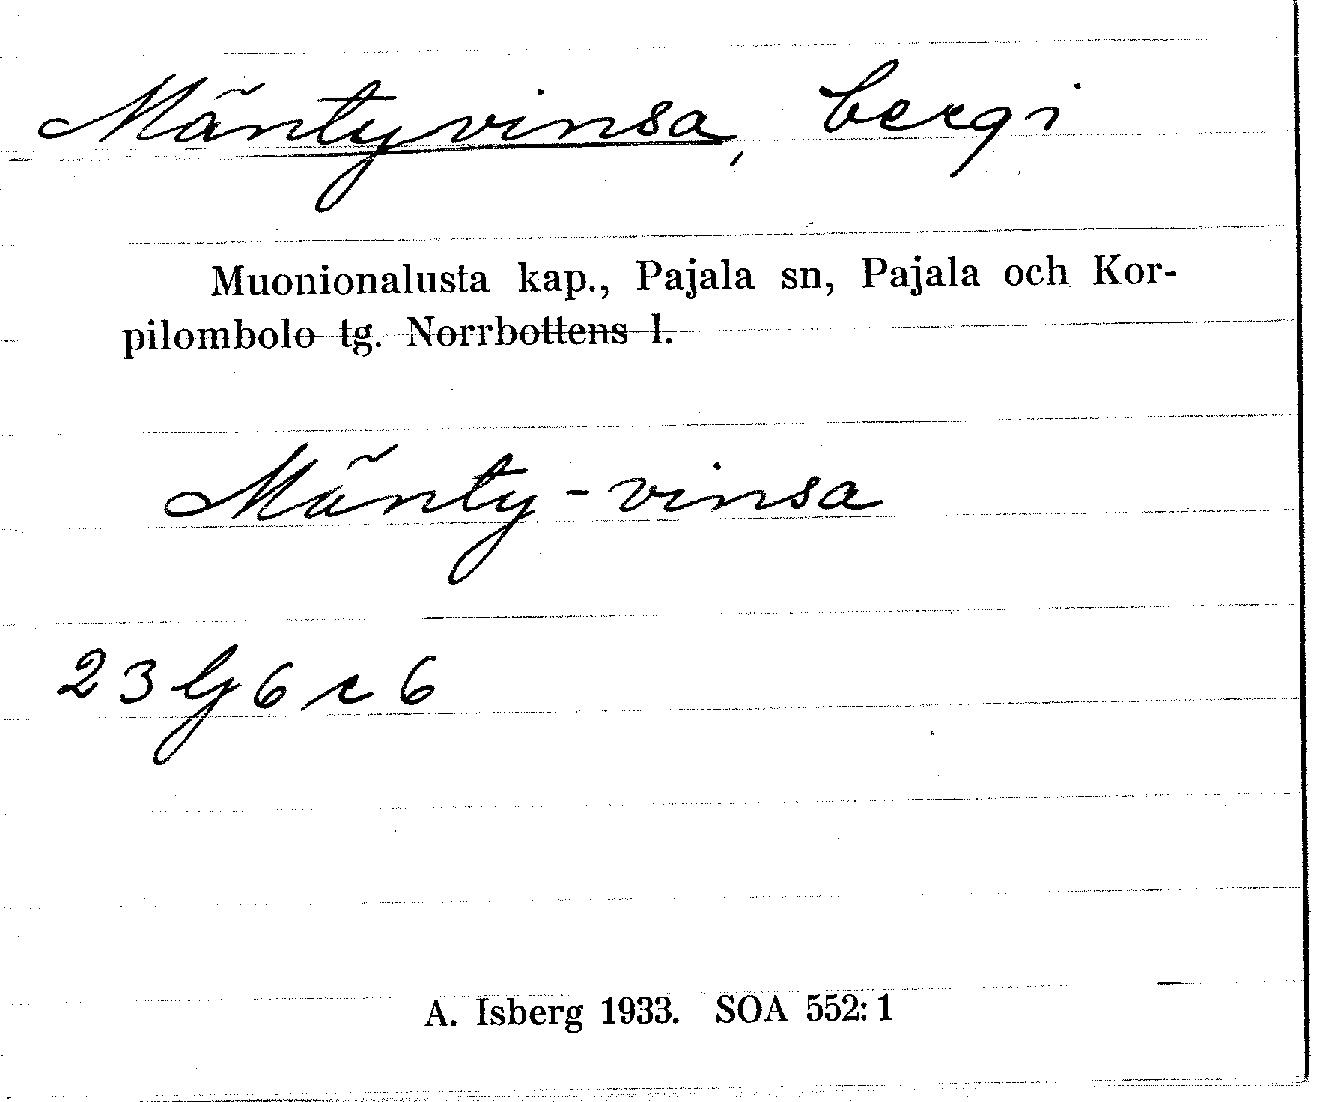 Mäntyvinsa, berg i
Muonionalusta kap., Pajala sn, Pajala och Kor-
pilombolo tg. Norrbottens l.
Mänty-vinsa
23 G 6 c 6
A. Isberg 1933. SOA 552:1